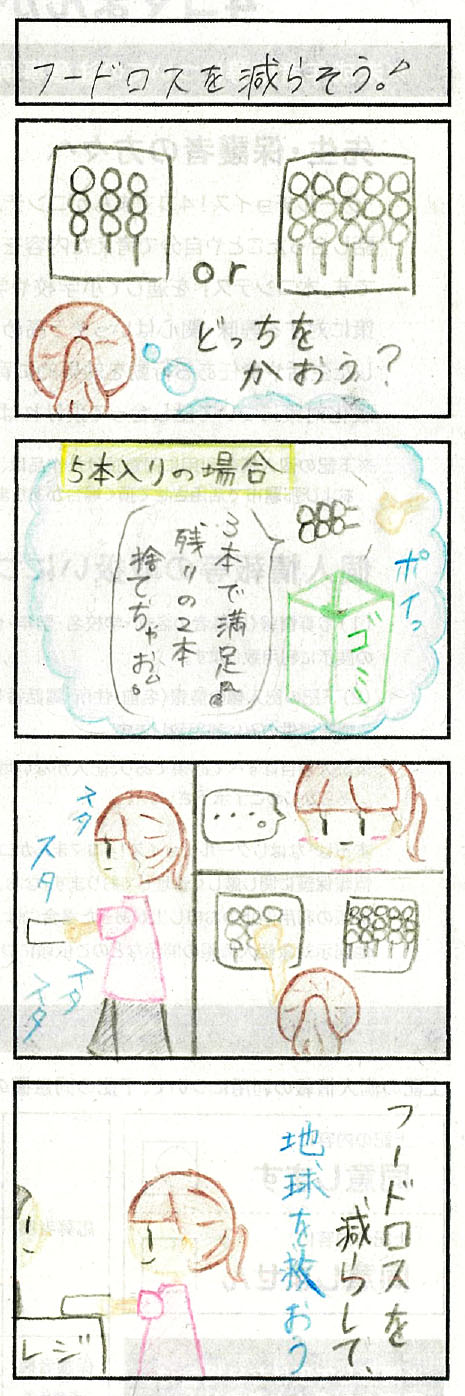 フードロスを減らそう。
or
どっちを
かおう?
5本入りの場合
3本で満足。
残りの2本
捨てぢゃお。
ポイっ
ゴミ
....。
スタ
スタ
スタ
スタ
フードロスを
減らして、
地球を救おう
レジ